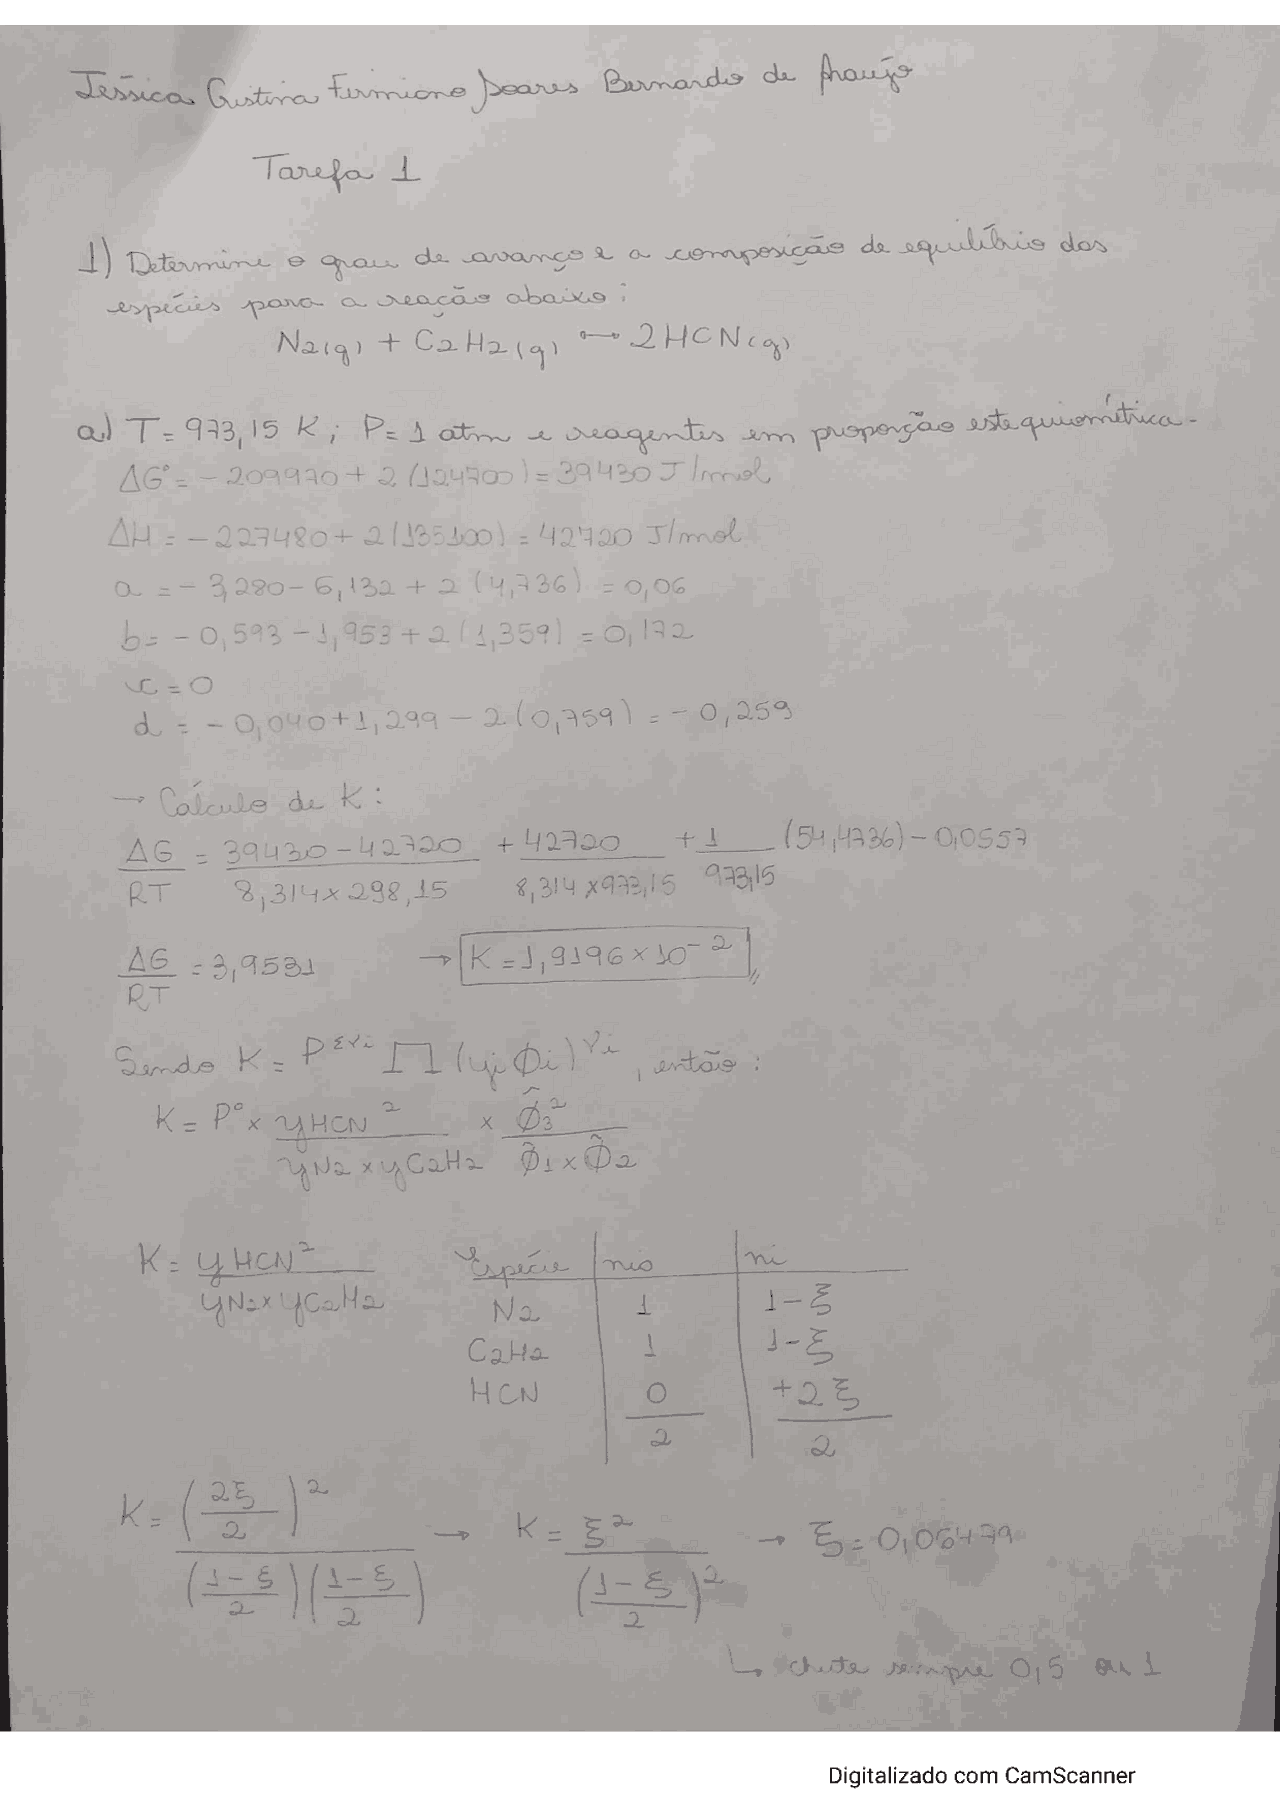 Jéssica Cristina Firmiano Soares Bernardo de Araújo
Tarefa 1
1) Determine o grau de avanço e a composição de equilíbrio das
espécies para a reação abaixo:
N2(g) + C2H2(g) ↔ 2HCN(g)
a) T= 973,15 K; P= 1 atm e reagentes em proporção estequiométrica.
ΔG°= - 209970 + 2(124700) = 39430 J/mol
ΔH = - 227480 + 2(135100) = 42720 J/mol
a = - 3,280 - 6,132 + 2 (4,736) = 0,06
b= - 0,593 - 1,953 + 2(1,359) = 0,172
c = 0
d = - 0,040 + 1,299 - 2(0,759) = - 0,259
→ Cálculo de K:
ΔG/RT = (39430 - 42720)/(8,314 x 298,15) + 42720/(8,314 x 973,15) + 1/973,15 (54,4736) - 0,0557
ΔG/RT = 3,9531 → K = 1,9196 x 10^-2
Sendo K = P^Σνi Π (yi ϕi)^νi, então:
K = P° x yHCN²/(yN2 x yC2H2) x ϕ̂3²/(ϕ̂1 x ϕ̂2)
K = yHCN²/(yN2 x yC2H2)
Espécie | nio | ni
N2 | 1 | 1-ξ
C2H2 | 1 | 1-ξ
HCN | 0 | +2ξ
2 | 2
K = (2ξ/2)²/((1-ξ/2)(1-ξ/2)) → K = ξ²/(1-ξ/2)² → ξ = 0,06479
↳ chute sempre 0,5 ou 1
Digitalizado com CamScanner